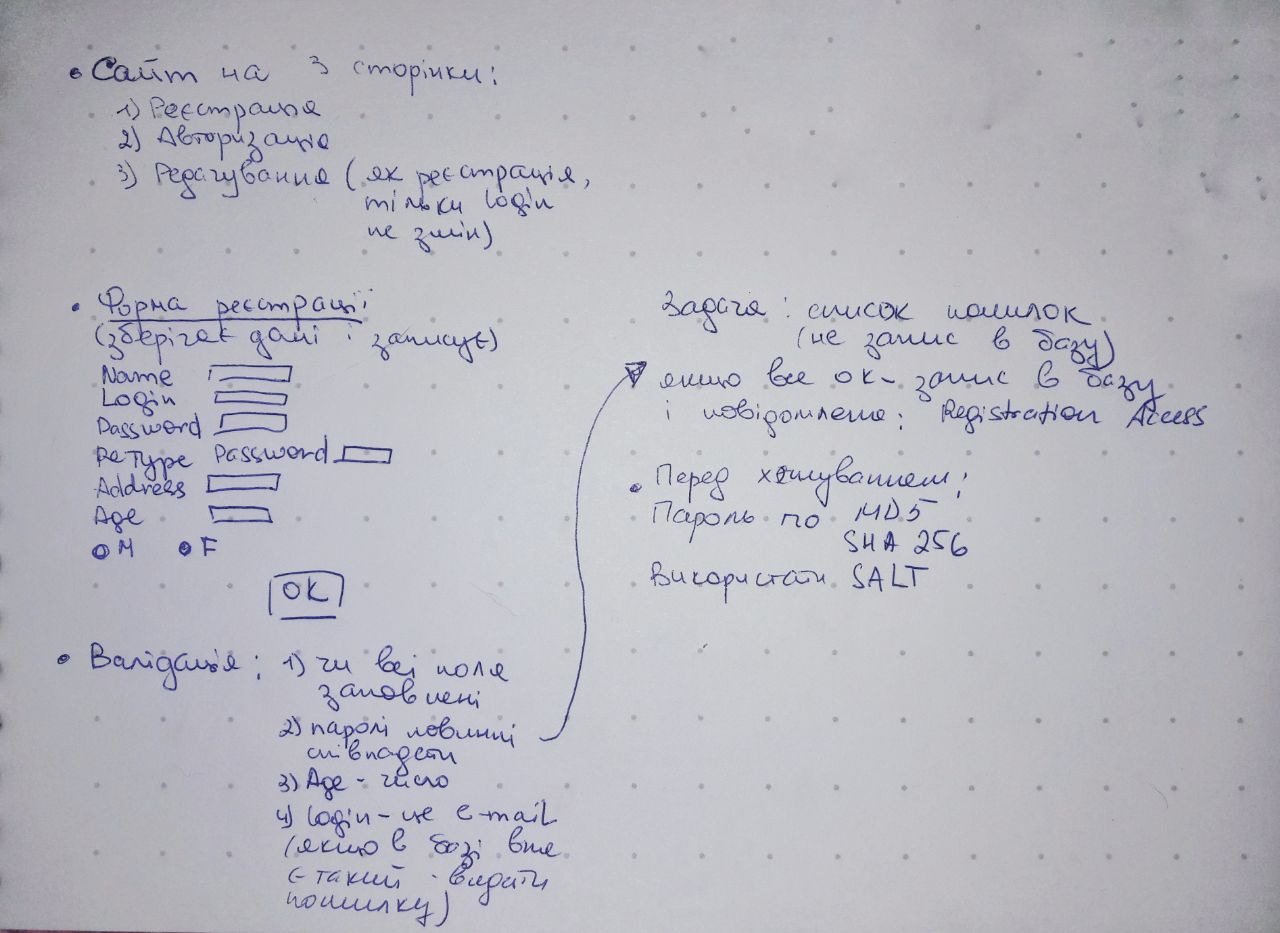 • Сайт на 3 сторінки:
1) Реєстрація
2) Авторизація
3) Редагування (як реєстрація,
тільки login
не змін)
• Форма реєстрації
(зберігає дані і записує)
Name
Login
Password
ReType Password
Address
Age
• M • F
OK
• Валідація: 1) чи всі поля
заповнені
2) паролі повинні
співпадати
3) Age - число
4) login - це e-mail
(якщо в базі вже
є такий - видати
помилку)
Задача: список помилок
(не запис в базу)
якщо все ок - запис в базу
і повідомлення: Registration Access
• Перед хешуванням:
Пароль по MD5
SHA 256
Використати SALT